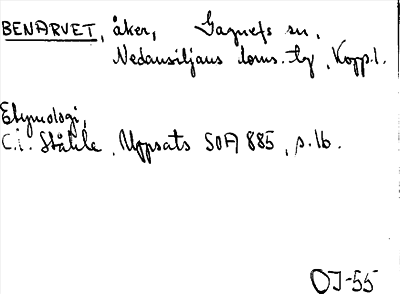 BENARVET, åker, Gagnefs sn,
Nedansiljans doms. tg, Kopp.l.
Etymologi,
C.I. Ståhle, Uppsats SOFI 885, s. 16.
OJ-55